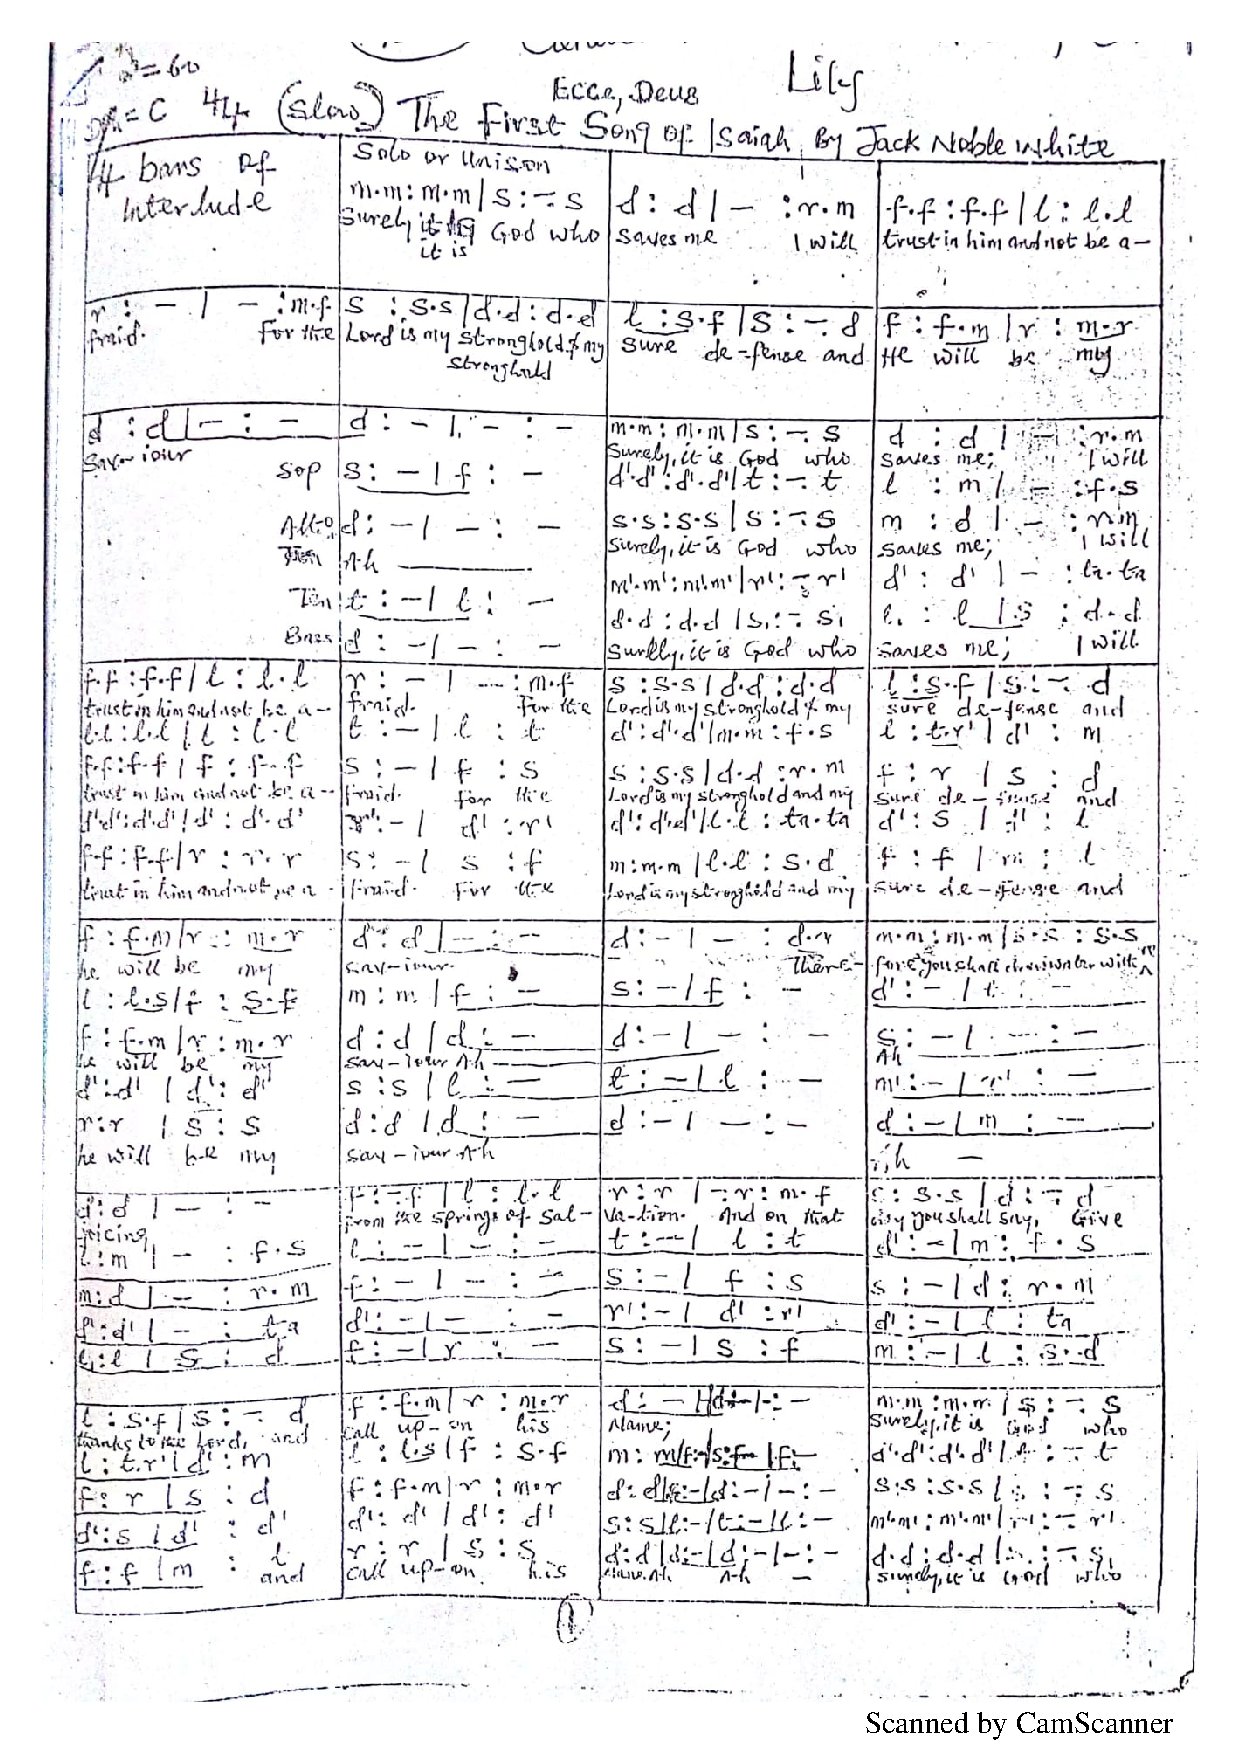 ♩=60
Lily
Ecce, Deus
Doh=C 4/4 (Slow) The First Song of Isaiah, By Jack Noble White
4 bars of
interlude
Solo or Unison
m.m:m.m|s:-.s
Surely it is God who
it is
d:d|-:r.m
saves me I will
f.f:f.f|l:l.l
trust in him and not be a-
r:-|-:m.f
fraid. For the
s:s.s|d.d:d.d
Lord is my stronghold & my
stronghold
l:s.f|s:-.d
sure de-fense and
f:f.m|r:m.r
He will be my
d:d|-:-
Sav-iour
d:-|-:-
Sop s:-|f:-
Alto d:-|-:-
Ah
Ten t:-|l:-
Bass d:-|-:-
m.m:m.m|s:-.s
Surely, it is God who
d'.d':d'.d'|t:-.t
s.s:s.s|s:-.s
Surely, it is God who
m'.m':m'.m'|r':-.r'
d.d:d.d|s,:-.s,
Surely, it is God who
d:d|-:r.m
saves me; I will
l:m|-:f.s
m:d|-:r.m
saves me; I will
d':d'|-:ta.ta
l,:l|s:d.d
saves me; I will
f.f:f.f|l:l.l
trust in him and not be a-
l.l:l.l|l:l.l
f.f:f.f|f:f.f
trust in him and not be a-
d'.d':d'.d'|d':d'.d'
f.f:f.f|r:r.r
trust in him and not be a-
r:-|-:m.f
fraid. For the
t:-|l:t
s:-|f:s
fraid. for the
r':-|d':r'
s:-|s:f
fraid. For the
s:s.s|d.d:d.d
Lord is my stronghold & my
d':d'.d'|m.m:f.s
s:s.s|d.d:r.m
Lord is my stronghold and my
d':d'.d'|l.l:ta.ta
m:m.m|l.l:s.d
Lord is my stronghold and my
l:s.f|s:-.d
sure de-fense and
l:t.r'|d':m
f:r|s:d
sure de-fense and
d':s|d':l
f:f|m:l
sure de-fense and
f:f.m|r:m.r
he will be my
l:l.s|f:s.f
f:f.m|r:m.r
he will be my
d':d'|d':d'
r:r|s:s
he will be my
d:d|-:-
sav-iour
m:m|f:-
d:d|d:-
sav-iour Ah
s:s|l:-
d:d|d:-
sav-iour Ah
d:-|-:d.r
There-
s:-|f:-
d:-|-:-
t:-|l:-
d:-|-:-
m.m:m.m|s.s:s.s
fore, you shall draw water with re
d':-|t:-
s:-|-:-
Ah
m':-|r':-
d:-|m:-
Ah -
d:d|-:-
joicing
l:m|-:f.s
m:d|-:r.m
d':d'|-:ta
l,:l|s:d
f:-.f|l:l.l
from the springs of Sal-
l:-|-:-
f:-|-:-
d':-|-:-
f:-|r:-
r:r|-.r:m.f
va-tion. And on that
t:-|l:t
s:-|f:s
r':-|d':r'
s:-|s:f
s:s.s|d:-.d
day you shall say, Give
d':-|m:f.s
s:-|d:r.m
d':-|l:ta
m:-|l:s.d
l:s.f|s:-.d
thanks to the Lord, and
l:t.r'|d':m
f:r|s:d
d':s|d':d'
f:f|m:l
and
f:f.m|r:m.r
call up-on his
l:l.s|f:s.f
f:f.m|r:m.r
d':d'|d':d'
r:r|s:s
call up-on his
d:-|d:-|-:-
Name;
m:m|f:-|s:-|f:-
d:d|d:-|d:-|-:-
s:s|l:-|t:-|l:-
d:d|d:-|d:-|-:-
Name Ah Ah -
m.m:m.m|s:-.s
Surely, it is God who
d'.d':d'.d'|t:-.t
s.s:s.s|s:-.s
m'.m':m'.m'|r':-.r'
d.d:d.d|s,:-.s,
surely, it is God who
1
Scanned by CamScanner